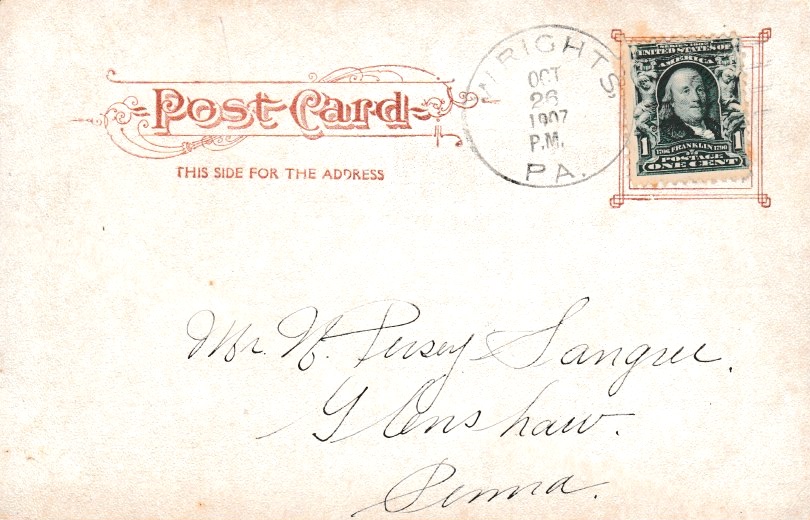 Post Card
THIS SIDE FOR THE ADDRESS
WRIGHTS,
OCT
26
1907
P.M.
PA.
UNITED STATES OF
AMERICA
1 1706 FRANKLIN 1790 1
POSTAGE
ONE CENT
Mr. W. Persey Sangree.
Glenshaw.
Penna.